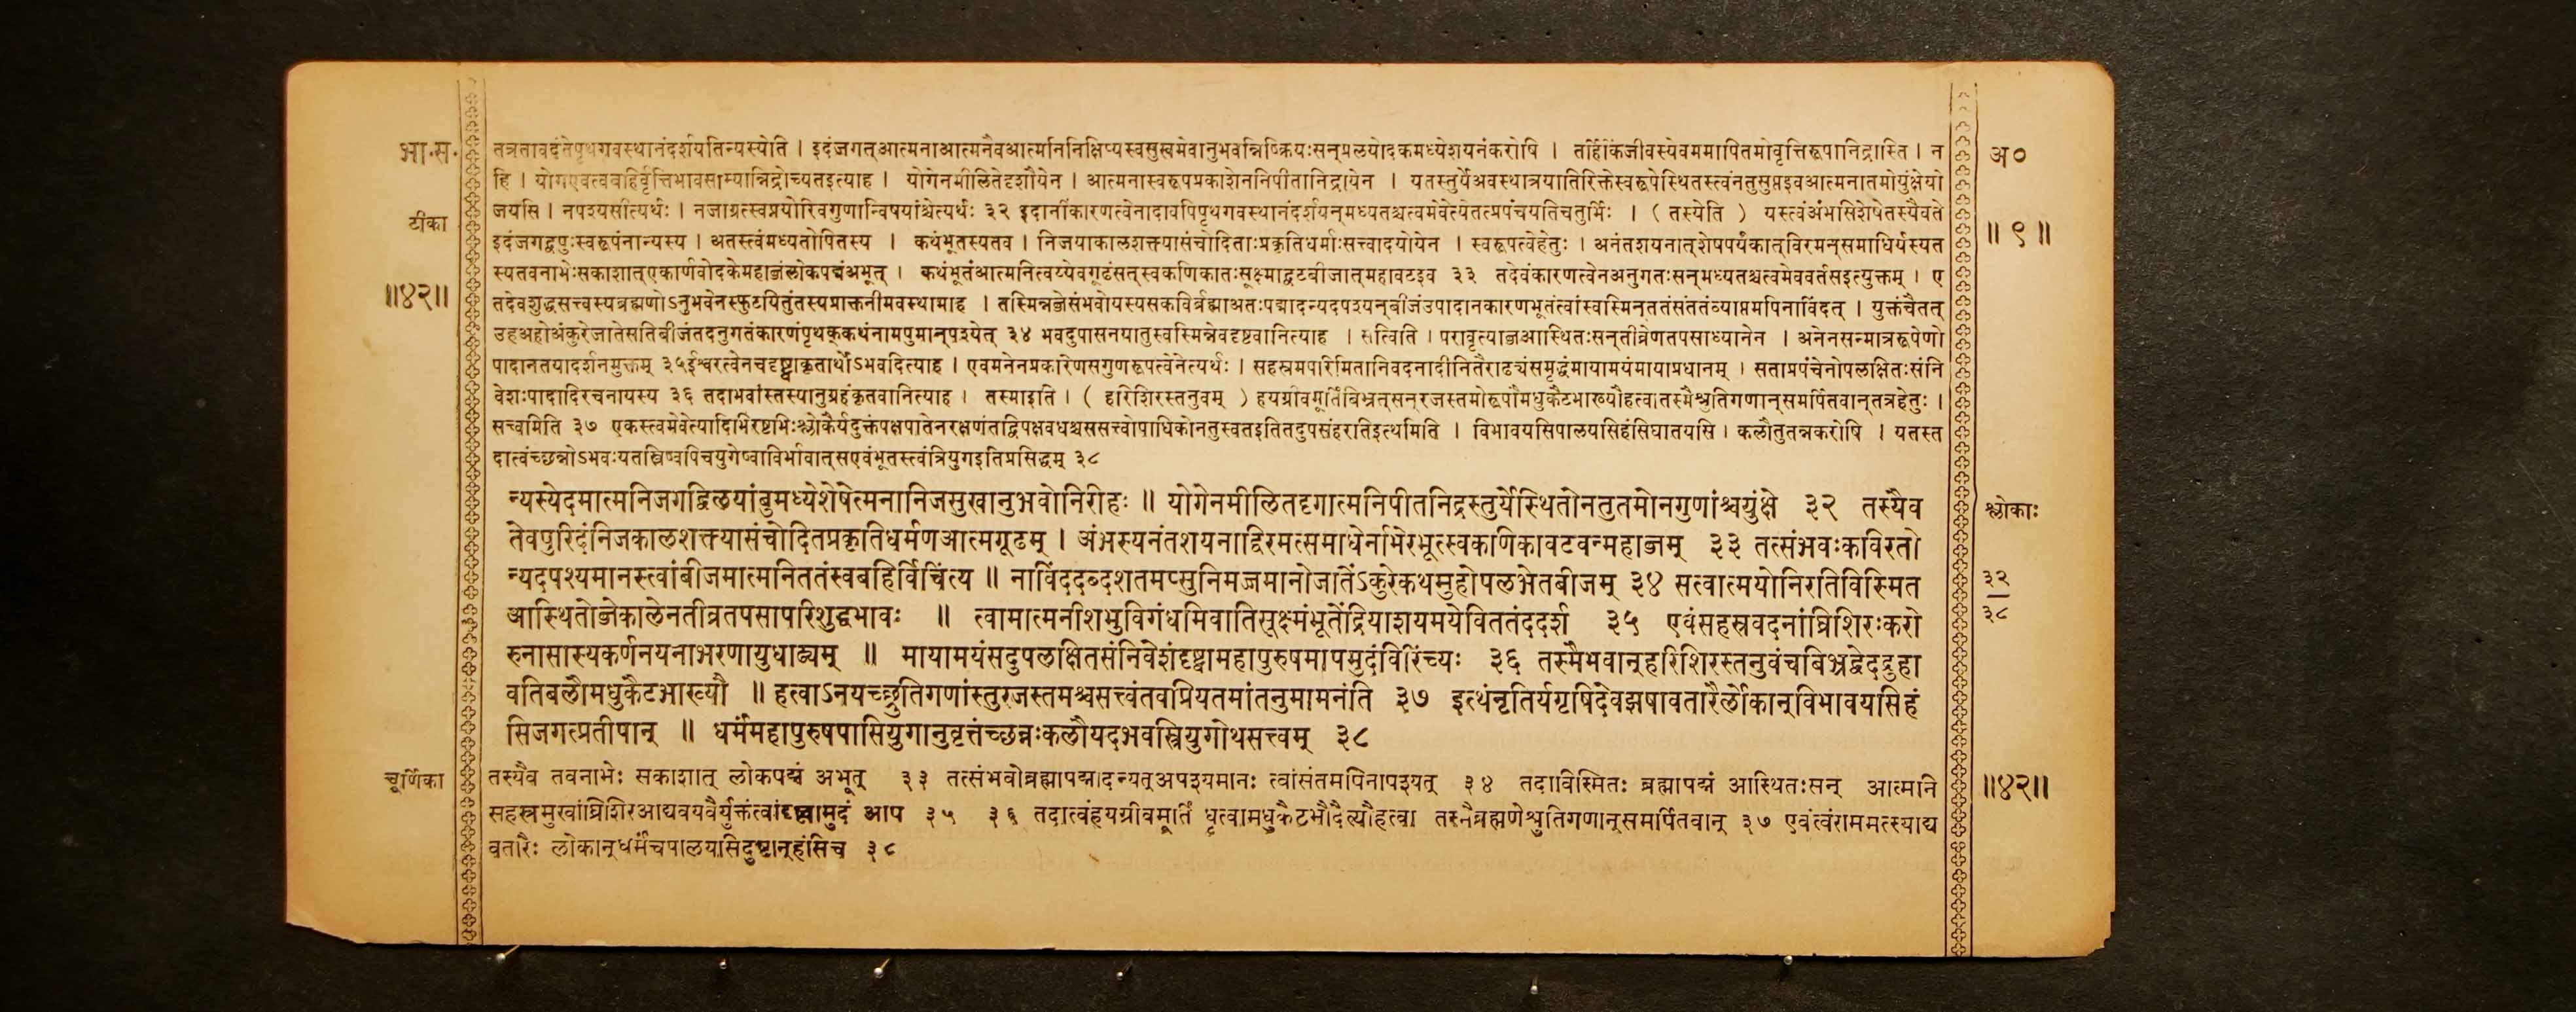 भा.स.
अ०
तत्रतावदंतेपृथगवस्थानंदर्शयतिन्यस्येति । इदंजगत्आत्मनाआत्मनैवआत्मनिनिक्षिप्यस्वसुखमेवानुभवन्निष्क्रियःसन्प्रलयोदकमध्येशयनंकरोषि । तर्हिकिंजीवस्येवममापितमोवृत्तिरूपानिद्रास्ति । न
हि । योगएवत्वबहिर्वृत्तिभावसाम्यान्निद्रोच्यतइत्याह । योगेनमीलितेदृशौयेन । आत्मनास्वरूपप्रकाशेननिपीतानिद्रायेन । यतस्तुर्येअवस्थात्रयातिरिक्तेस्वरूपेस्थितस्त्वंनतुसुप्तइवआत्मनातमोयुंक्षेयो
टीका
जयसि । नपश्यसीत्यर्थः । नजाग्रत्स्वप्नयोरिवगुणान्विषयांश्चेत्यर्थः ३२ इदानींकारणत्वेनादावपिपृथगवस्थानंदर्शयन्मध्यतश्चत्वमेवेत्येतत्प्रपंचयतिचतुर्भिः । ( तस्येति ) यस्त्वंअंभसिशेषेतस्यैवते
॥ ९ ॥
इदंजगद्वपुःस्वरूपंनान्यस्य । अतस्त्वंमध्यतोपितस्य । कथंभूतस्यतव । निजयाकालशक्त्यासंचोदिताःप्रकृतिधर्माःसत्त्वादयोयेन । स्वरूपत्वेहेतुः । अनंतशयनात्शेषपर्यंकात्विरमन्समाधिर्यस्यत
स्यतवनाभेःसकाशात्एकार्णवोदकेमहाब्जंलोकपद्मंअभूत् । कथंभूतंआत्मनित्वय्येवगूढंसत्स्वकणिकातःसूक्ष्माद्वटबीजात्महावटइव ३३ तदेवंकारणत्वेनअनुगतःसन्मध्यतश्चत्वमेववर्तसइत्युक्तम् । ए
॥४२॥
तदेवशुद्धसत्त्वस्यब्रह्मणोऽनुभवेनस्फुटयितुंतस्यप्राक्तनीमवस्थामाह । तस्मिन्नब्जेसंभवोयस्यसकविर्ब्रह्माअतःपद्मादन्यदपश्यन्बीजंउपादानकारणभूतंत्वांस्वस्मिन्ततंसंततंव्याप्तमपिनाविंदत् । युक्तंचैतत्
उहअहोअंकुरेजातेसतिबीजंतदनुगतंकारणंपृथक्कथंनामपुमान्पश्येत् ३४ भवदुपासनयातुस्वस्मिन्नेवदृष्टवानित्याह । सत्विति । परावृत्याब्जआस्थितःसन्तीव्रेणतपसाध्यानेन । अनेनसन्मात्ररूपेणो
पादानतयादर्शनमुक्तम् ३५ईश्वरत्वेनचदृष्ट्वाकृतार्थोऽभवदित्याह । एवमनेनप्रकारेणसगुणरूपत्वेनेत्यर्थः । सहस्रमपरिमितानिवदनादीनितैराढ्यंसमृद्धंमायामयंमायाप्रधानम् । सताप्रपंचेनोपलक्षितःसंनि
वेशःपादादिरचनायस्य ३६ तदाभवांस्तस्यानुग्रहंकृतवानित्याह । तस्माइति । ( हरिशिरस्तनुवम् ) हयग्रीवमूर्तिंबिभ्रत्सन्रजस्तमोरूपौमधुकैटभाख्यौहत्वातस्मैश्रुतिगणान्समर्पितवान्तत्रहेतुः ।
सत्त्वमिति ३७ एकस्त्वमेवेत्यादिभिरष्टभिःश्लोकैर्यदुक्तंपक्षपातेनरक्षणंतद्विपक्षवधश्चससत्त्वोपाधिकोनतुस्वतइतितदुपसंहरतिइत्थमिति । विभावयसिपालयसिहंसिघातयसि । कलौतुतन्नकरोषि । यतस्त
दात्वंच्छन्नोऽभवःयतस्त्रिष्वपिचयुगेष्वाविर्भावात्सएवंभूतस्त्वंत्रियुगइतिप्रसिद्धम् ३८
न्यस्येदमात्मनिजगद्विलयांबुमध्येशेषेत्मनानिजसुखानुभवोनिरीहः ॥ योगेनमीलितदृगात्मनिपीतनिद्रस्तुर्येस्थितोनतुतमोनगुणांश्चयुंक्षे ३२ तस्यैव
श्लोकाः
तेवपुरिदंनिजकालशक्त्यासंचोदितप्रकृतिधर्मणआत्मगूढम् । अंभस्यनंतशयनाद्विरमत्समाधेर्नाभेरभूत्स्वकणिकावटवन्महाब्जम् ३३ तत्संभवःकविरतो
न्यदपश्यमानस्त्वांबीजमात्मनिततंस्वबहिर्विचिंत्य ॥ नाविंददब्दशतमप्सुनिमज्जमानोजातेंऽकुरेकथमुहोपलभेतबीजम् ३४ सत्वात्मयोनिरतिविस्मित
३२
३८
आस्थितोब्जेकालेनतीव्रतपसापरिशुद्धभावः ॥ त्वामात्मनीशभुविगंधमिवातिसूक्ष्मंभूतेंद्रियाशयमयेविततंददर्श ३५ एवंसहस्रवदनांघ्रिशिरःकरो
रुनासास्यकर्णनयनाभरणायुधाढ्यम् ॥ मायामयंसदुपलक्षितसंनिवेशंदृष्ट्वामहापुरुषमापमुदंविरिंच्यः ३६ तस्मैभवान्हरिशिरस्तनुवंचबिभ्रद्वेदद्रुहा
वतिबलौमधुकैटभाख्यौ ॥ हत्वाऽनयच्छ्रुतिगणांस्तुरजस्तमश्चसत्त्वंतवप्रियतमांतनुमामनंति ३७ इत्थंनृतिर्यगृषिदेवझषावतारैर्लोकान्विभावयसिहं
सिजगत्प्रतीपान् ॥ धर्मंमहापुरुषपासियुगानुवृत्तंच्छन्नःकलौयदभवस्त्रियुगोथसत्त्वम् ३८
चूर्णिका
तस्यैव तवनाभेः सकाशात् लोकपद्मं अभूत् ३३ तत्संभवोब्रह्मापद्मादन्यत्अपश्यमानः त्वांसंतमपिनापश्यत् ३४ तदाविस्मितः ब्रह्मापद्मं आस्थितःसन् आत्मनि
॥४२॥
सहस्रमुखांघ्रिशिरआद्यवयवैर्युक्तंत्वांदृष्ट्वामुदं आप ३५ ३६ तदात्वंहयग्रीवमूर्तिं धृत्वामधुकैटभौदैत्यौहत्वा तस्मैब्रह्मणेश्रुतिगणान्समर्पितवान् ३७ एवंत्वंराममत्स्याद्य
वतारैः लोकान्धर्मंचपालयसिदुष्टान्हंसिच ३८